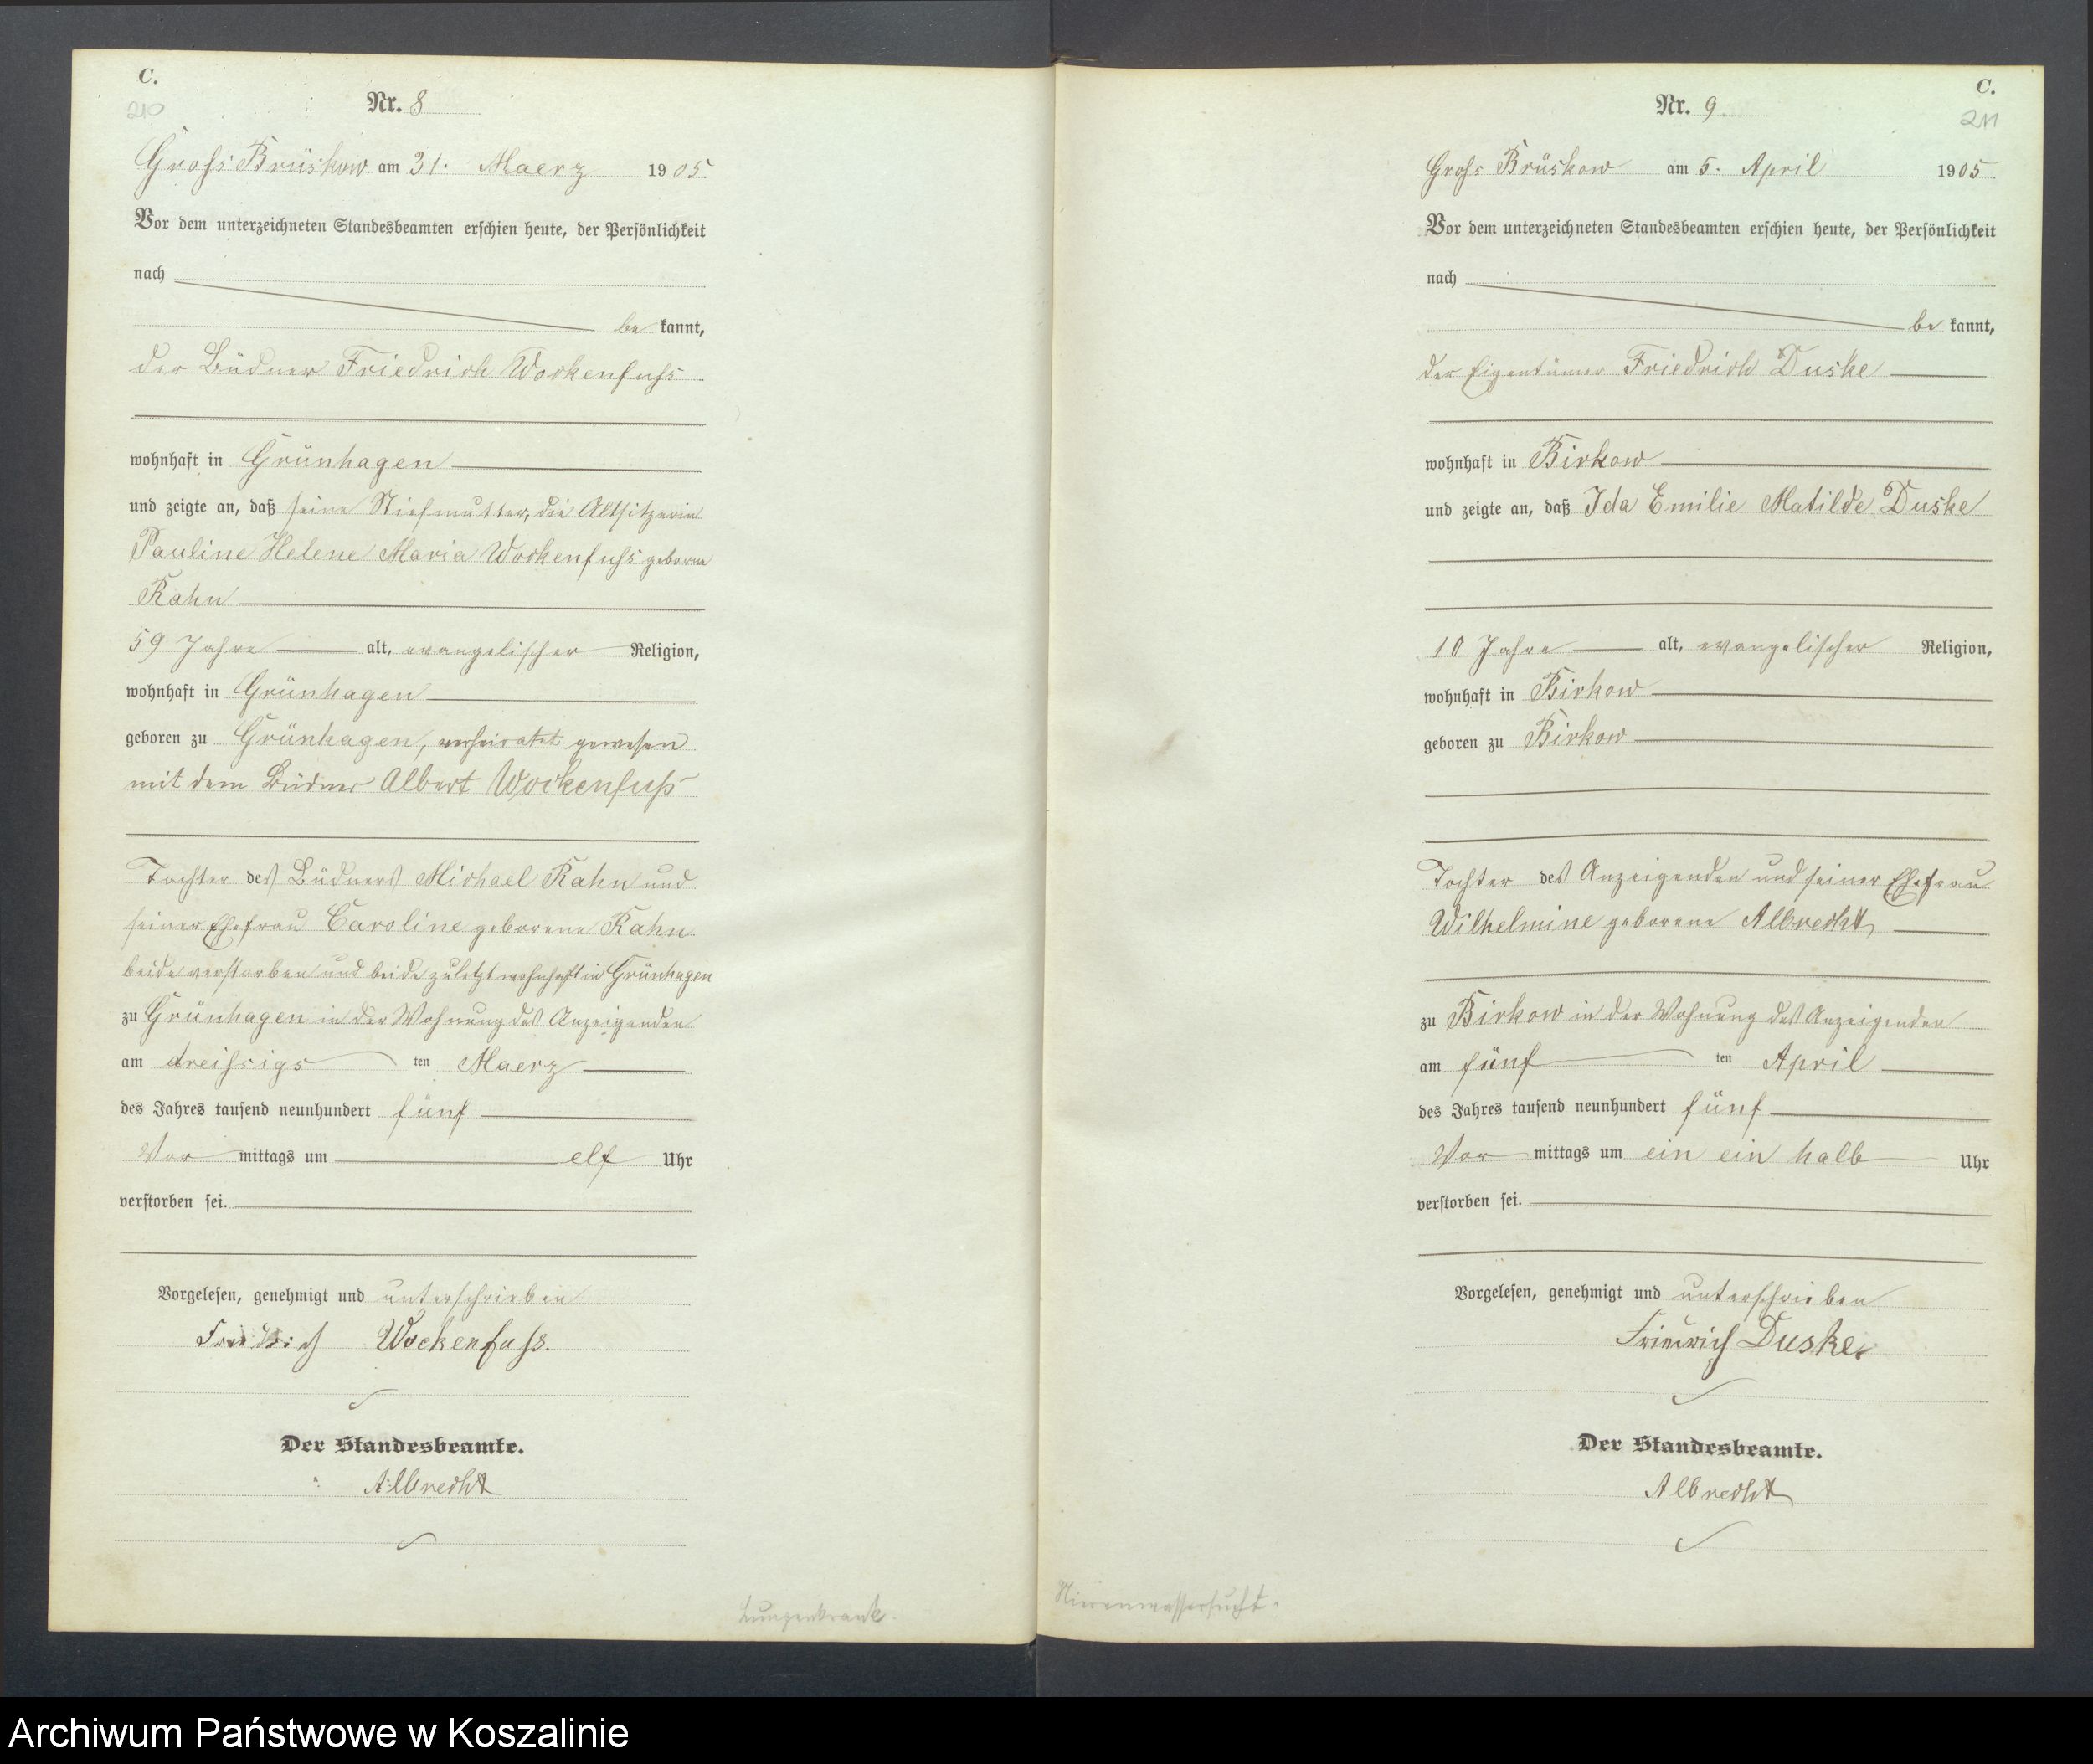 C.
210
Nr. 8
Gross Brüskow am 31. Maerz 1905.
Vor dem unterzeichneten Standesbeamten erschien heute, der Persönlichkeit
nach
be kannt,
der Büdner Friedrich Wockenfuss
wohnhaft in Grünhagen
und zeigte an, daß seine Stiefmutter, die Altsitzerin
Pauline Helene Maria Wockenfuss geborne
Kahn
59 Jahre alt, evangelischer Religion,
wohnhaft in Grünhagen
geboren zu Grünhagen, verheiratet gewesen
mit dem Büdner Albert Wockenfuss
Tochter des Büdners Michael Kahn und
seiner Ehefrau Caroline geborene Kahn
beide verstorben und beide zuletzt wohnhaft in Grünhagen
zu Grünhagen in der Wohnung des Anzeigenden
am dreissigs ten Maerz
des Jahres tausend neunhundert fünf
Vor mittags um elf Uhr
verstorben sei.
Vorgelesen, genehmigt und unterschrieben
Friedrich Wockenfuss.
Der Standesbeamte.
Albrecht
Lungenkrank.
C.
211
Nr. 9.
Gross Brüskow am 5. April 1905
Vor dem unterzeichneten Standesbeamten erschien heute, der Persönlichkeit
nach
be kannt,
der Eigentümer Friedrich Duske
wohnhaft in Birkow
und zeigte an, daß Ida Emilie Matilde Duske
10 Jahre alt, evangelischer Religion,
wohnhaft in Birkow
geboren zu Birkow
Tochter des Anzeigenden und seiner Ehefrau
Wilhelmine geborene Albrecht
zu Birkow in der Wohnung des Anzeigenden
am fünf ten April
des Jahres tausend neunhundert fünf
Vor mittags um ein ein halb Uhr
verstorben sei.
Vorgelesen, genehmigt und unterschrieben
Friedrich Duske
Der Standesbeamte.
Albrecht
Nierenwassersucht.
Archiwum Państwowe w Koszalinie